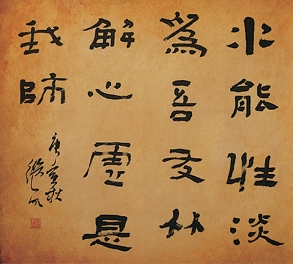 水能性淡
爲吾友竹
解心虛是
我師
庚寅秋